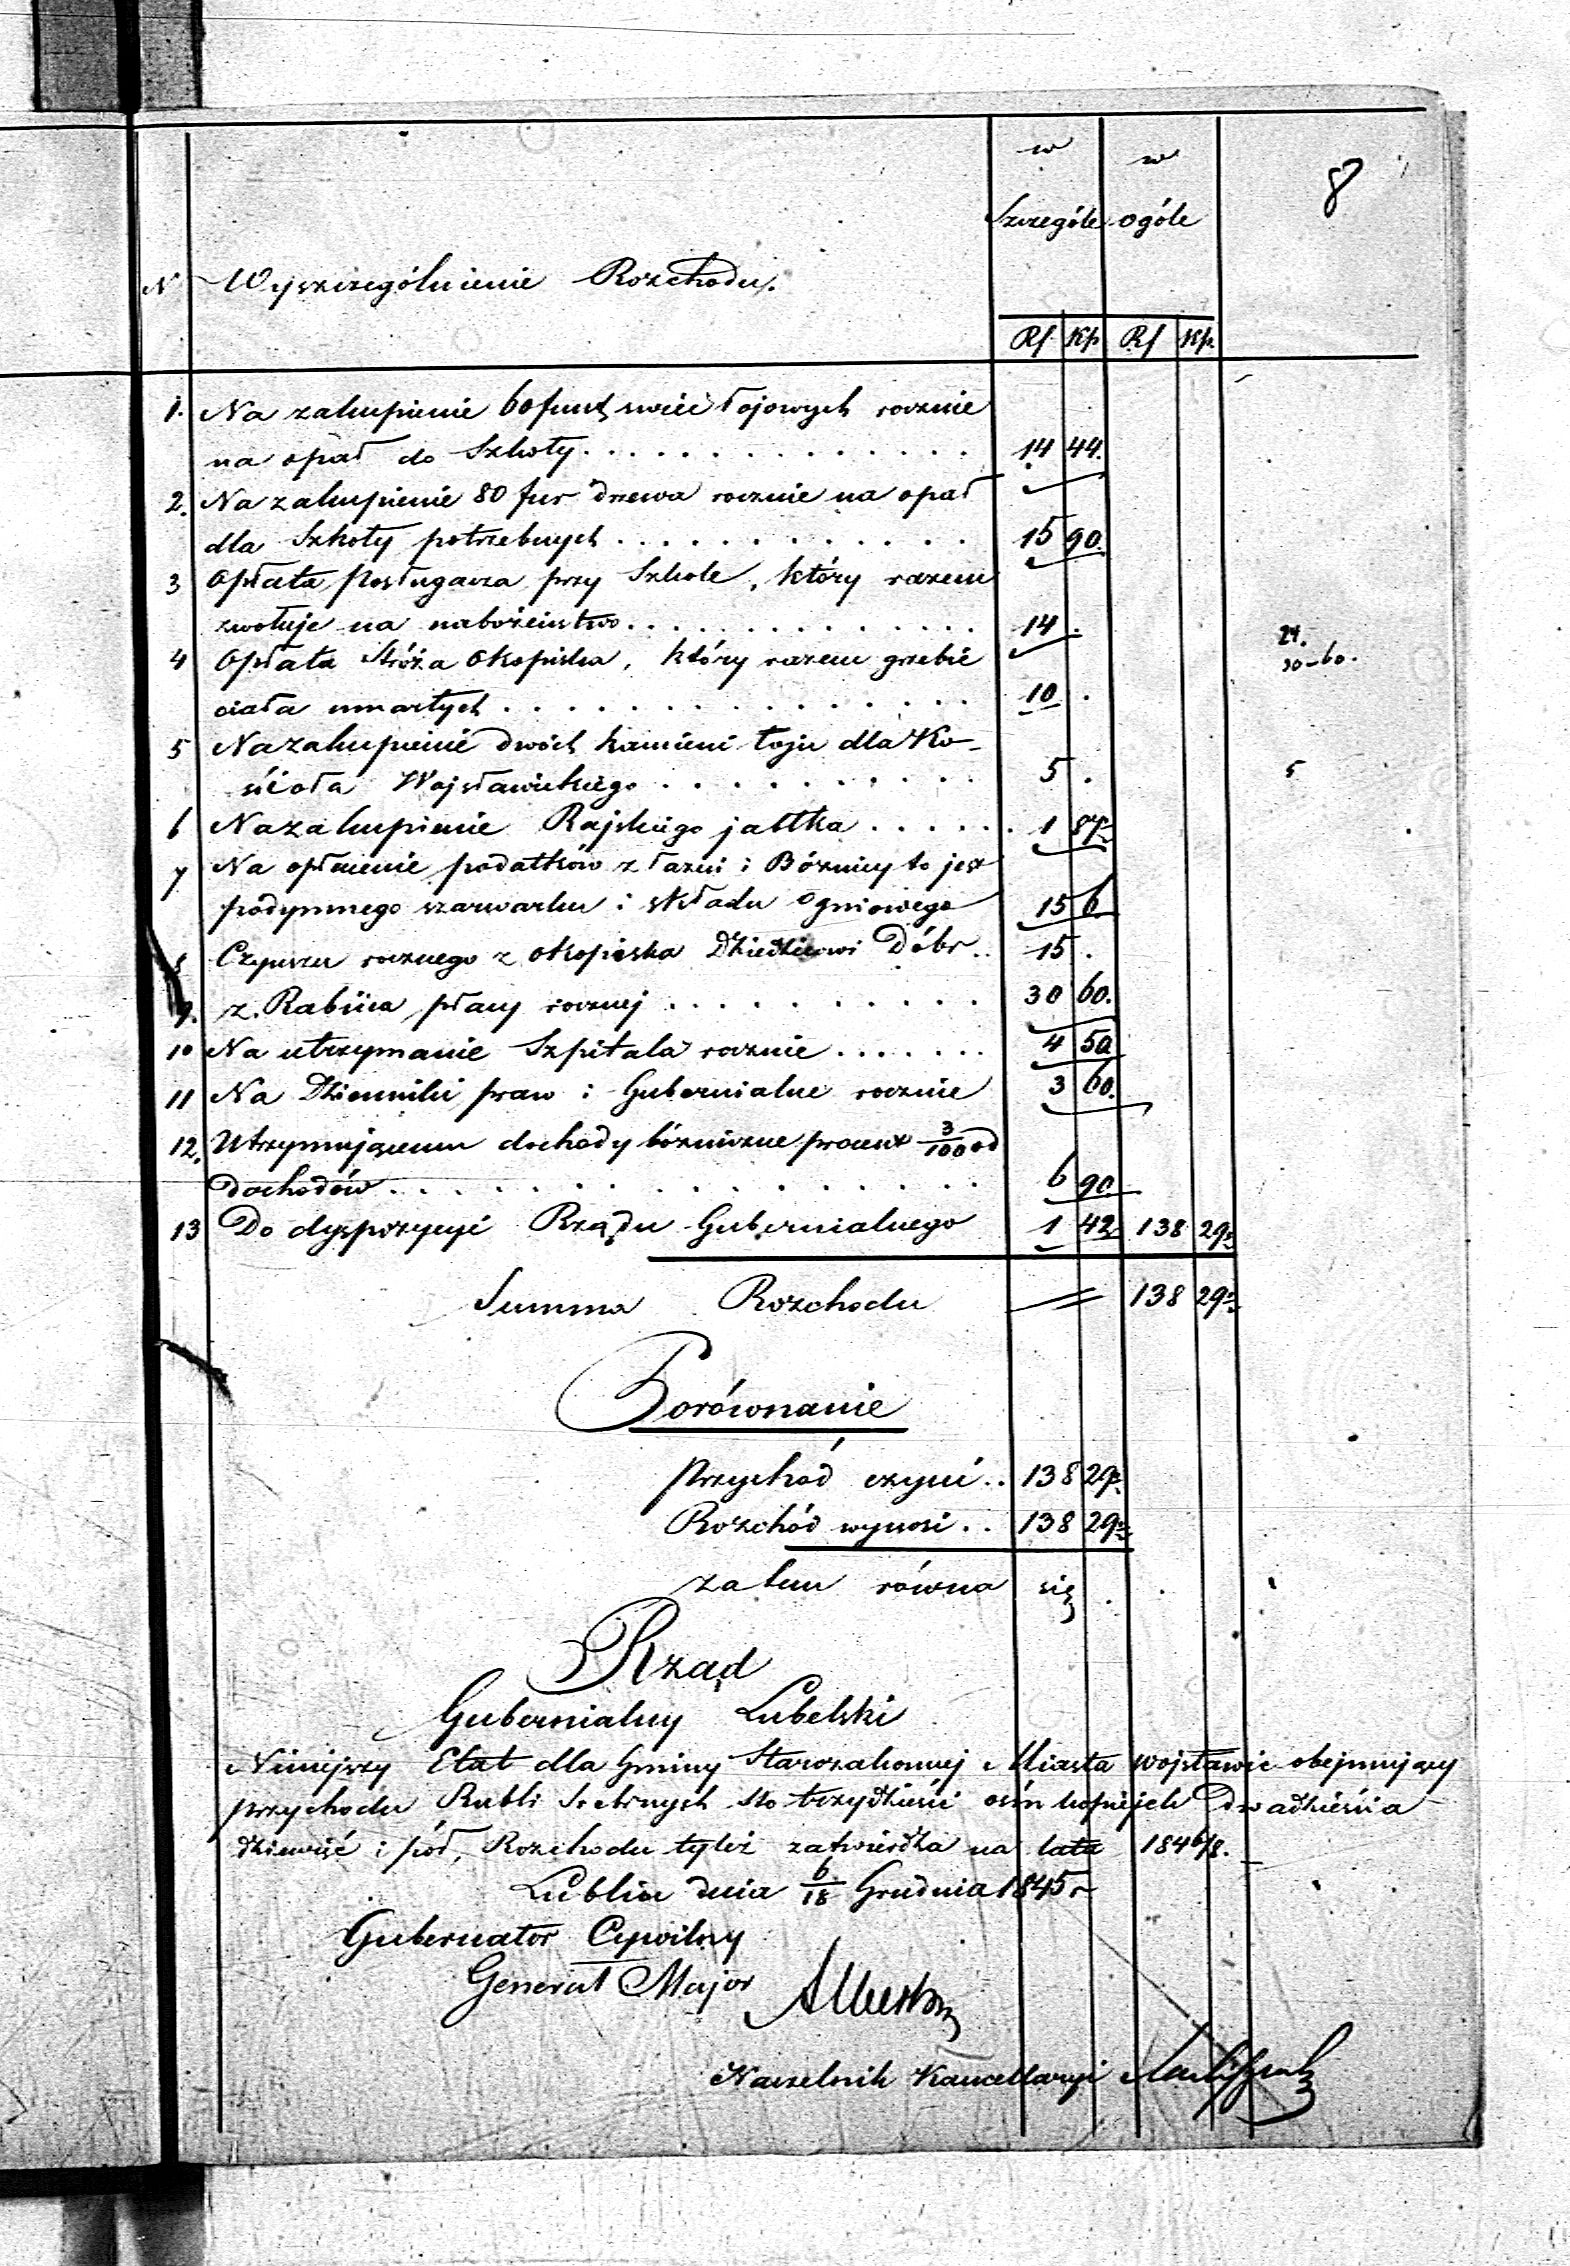 8
w w
Szczególe ogóle
N Wyszczególnienie Rozchodu.
Rs Kp Rs Kp.
1. Na zakupienie 60 funt swiec łojowych rocznie
na opał do Szkoły. . . . . . . . . . . . 14 44.
2. Na zakupienie 80 fur drzewa rocznie na opał
dla Szkoły potrzebnych . . . . . . . . . . 15 90.
3 Opłata Posługacza przy Szkole, który razem
zwołuje na nabożeństwo . . . . . . . . . . 14 .
4 Opłata Stróża Okopiska, który razem grzebie 24.
30-60.
ciała umarłych . . . . . . . . . . . . . 10 .
5 Na zakupienie dwóch kamieni łoju dla Ko-
ścioła Wojsławickiego . . . . . . . . . . 5 . 5
6 Na zakupienie Rajskiego jabłka . . . . . . 1 87
7 Na opłacenie podatków z łazni i Bóżnicy to jest
podymnego szarwarku i składu Ogniowego 15 6
8 Czynszu rocznego z okopiska Dziedzicowi Dóbr . . 15 .
9. z. Rabina płacy rocznej . . . . . . . . . 30 60.
10 Na utrzymanie Szpitala rocznie . . . . . . . 4 50
11 Na Dzienniki praw i Gubernialne rocznie 3 60.
12. Utrzymującemu dochody bóżniczne procent 3/100 od
dochodów . . . . . . . . . . . . . . . 6 90
13 Do dyspozycyi Rządu Gubernialnego 1 42 138 29½
Summa Rozchodu 138 29½
Porównanie
Przychód czyni . . 138 29½
Rozchód wynosi . . 138 29½
zatem równa się
Rząd
Gubernialny Lubelski
Niniejszy Etat dla Gminy Starozakonnej Miasta Wojsławic obejmujący
przychodu Rubli Srebrnych sto trzydzieści ośm kopiejek Dwadzieścia
dziewięć i pół, Rozchodu tyleż zatwierdza na lata 1846/8.
Lublin dnia 6/18 Grudnia 1845 r
Gubernator Cywilny
Generał Major
Naczelnik Kancellaryi